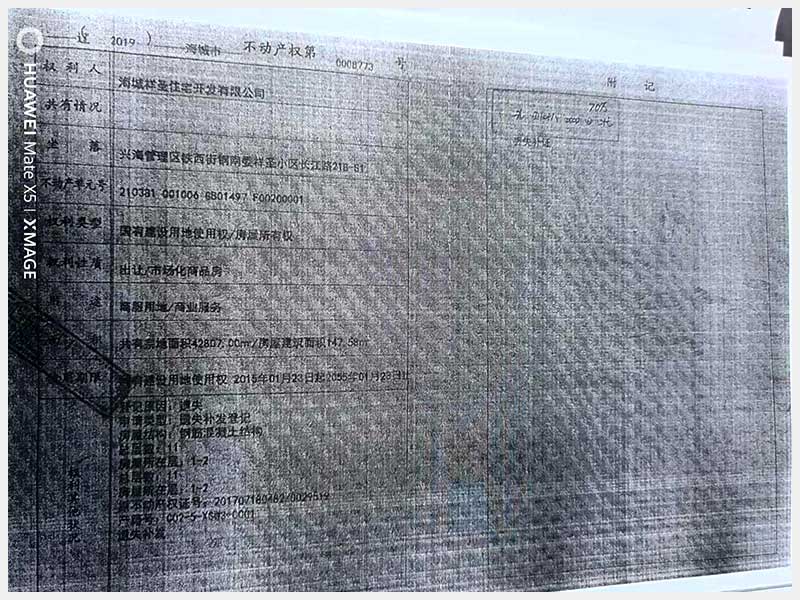 辽 ( 2019 ) 海城市 不动产权第 0008773 号
附 记
权 利 人 海城祥圣住宅开发有限公司
共有情况
坐 落 兴海管理区铁西街钢南委祥圣小区长江路21B-S1
不动产单元号 210381 001006 GB01497 F00200001
权利类型 国有建设用地使用权/房屋所有权
权利性质 出让/市场化商品房
用 途 商服用地/商业服务
共有宗地面积42807.00m²/房屋建筑面积147.58m²
使用期限 国有建设用地使用权 2015年01月23日起2055年01月23日止
登记原因：遗失
申请类型：遗失补发登记
房屋结构：钢筋混凝土结构
总层数：11
房屋所在层：1-2
总层数：11
房屋所在层：1-2
原不动产权证号：201707180482/0029519
遗失补发
遗失补证
HUAWEI Mate X5 | XMAGE